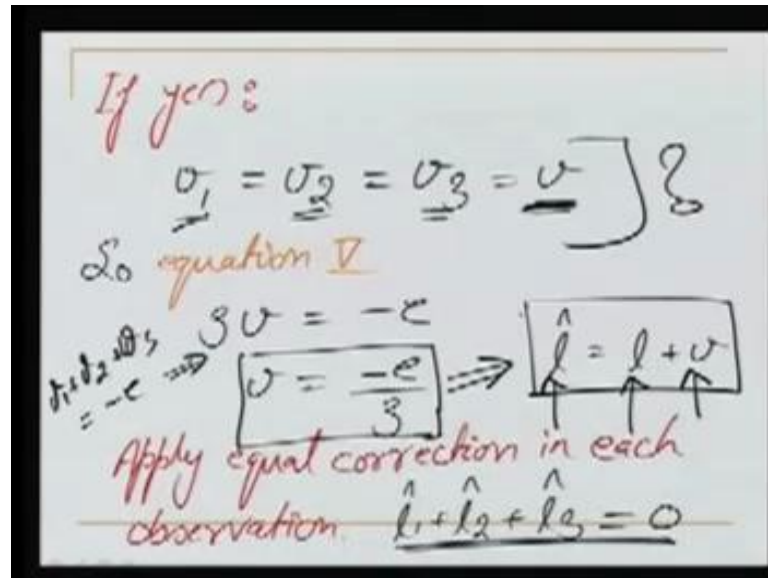 If yes:
v₁ = v₂ = v₃ = v ] ?
So equation V
v₁+v₂+v₃ = -e ⇒ 3v = -e
v = -e/3 ⇒ l̂ = l + v
Apply equal correction in each
observation. l̂₁+l̂₂+l̂₃ = 0